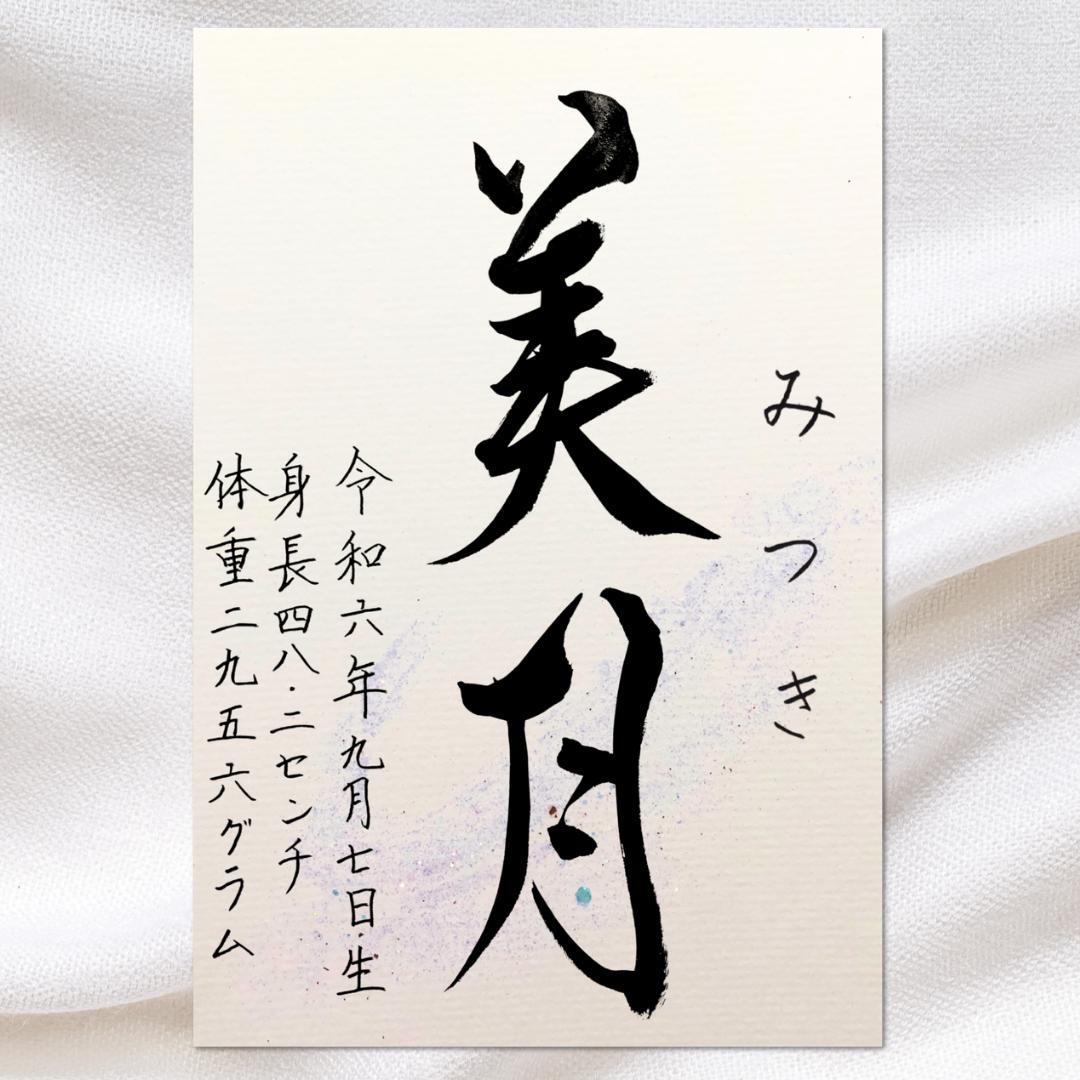 みつき
美月
令和六年九月七日生
身長四八・二センチ
体重二九五六グラム